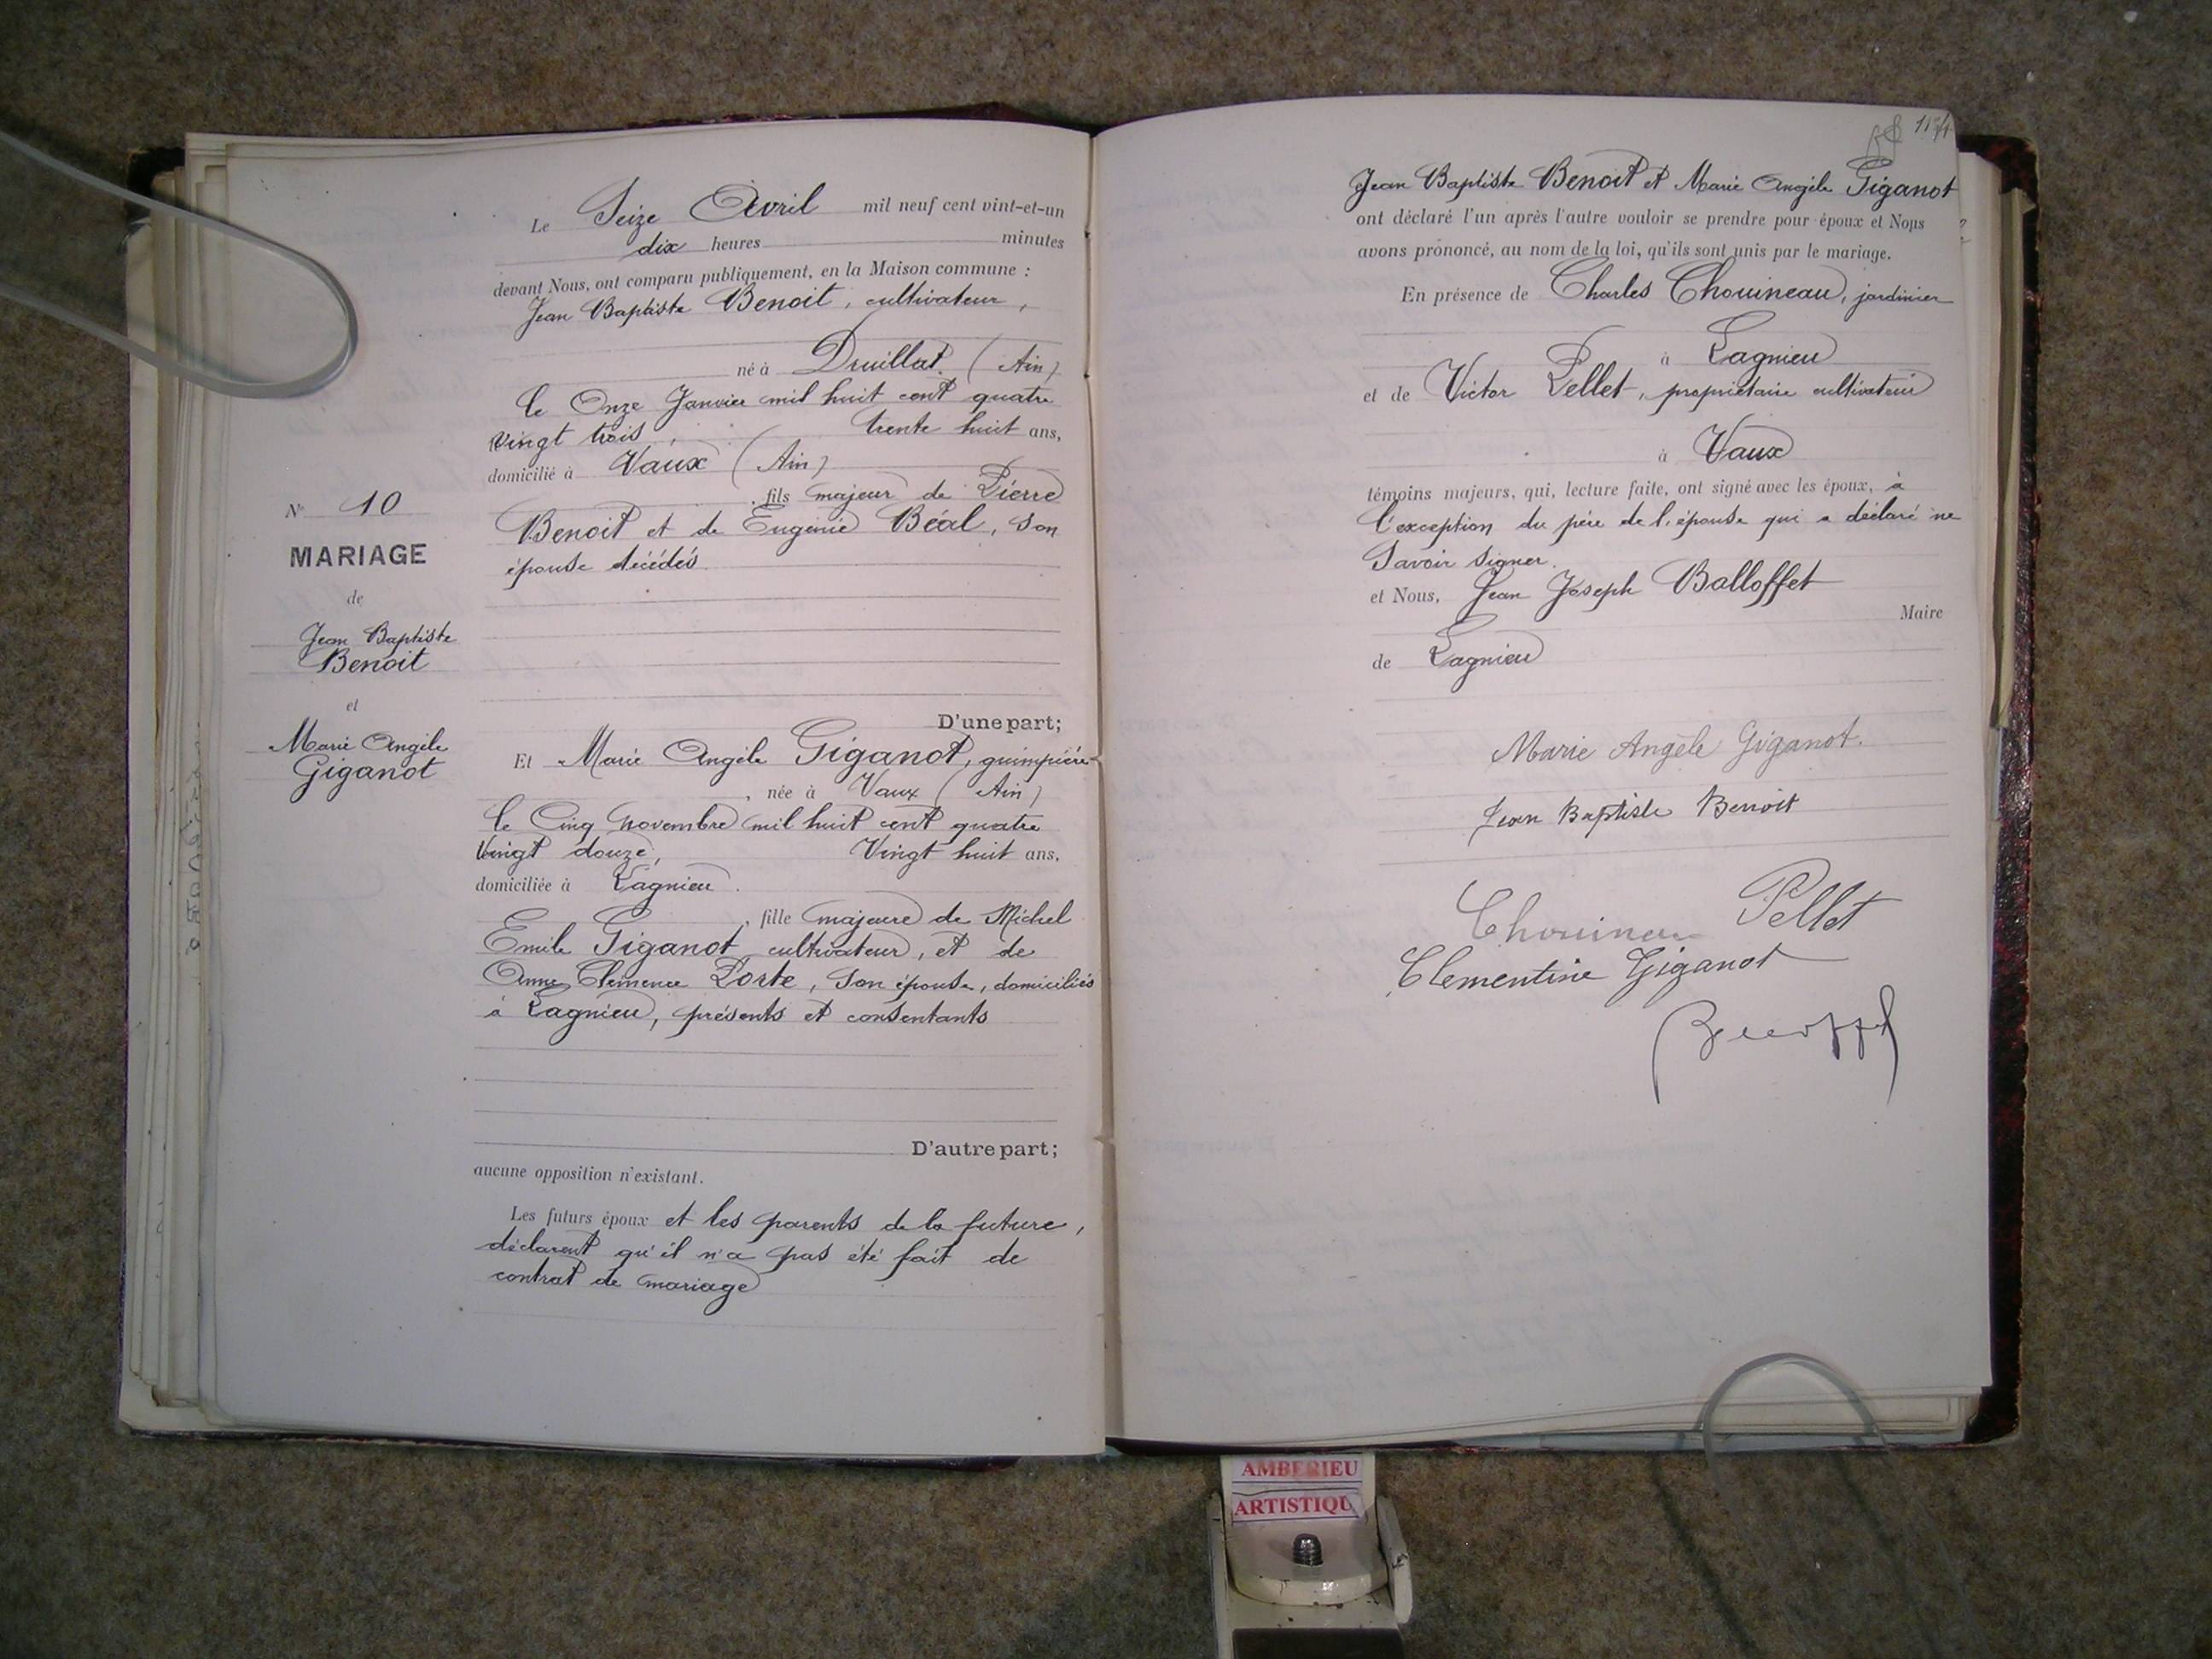 Le Seize Avril mil neuf cent vint-et-un
dix heures minutes
devant Nous, ont comparu publiquement, en la Maison commune :
Jean Baptiste Benoit, cultivateur,
né à Druillat. (Ain)
le Onze Janvier mil huit cent quatre
vingt trois, trente huit ans,
domicilié à Vaux (Ain)
, fils majeur de Pierre
Benoit et de Eugénie Béal, son
épouse décédés.
D'une part;
N° 10
MARIAGE
de
Jean Baptiste
Benoit
et
Marie Angèle
Giganot
Et Marie Angèle Giganot, guimpière
, née à Vaux (Ain)
le Cinq Novembre mil huit cent quatre
Vingt douze, Vingt huit ans,
domiciliée à Lagnieu.
, fille majeure de Michel
Emile Giganot cultivateur, et de
Anne Clémence Porte, son épouse, domiciliés
à Lagnieu, présents et consentants
D'autre part;
aucune opposition n'existant.
Les futurs époux et les parents de la future,
déclarent qu'il n'a pas été fait de
contrat de mariage
Jean Baptiste Benoit et Marie Angèle Giganot
ont déclaré l'un après l'autre vouloir se prendre pour époux et Nous
avons prononcé, au nom de la loi, qu'ils sont unis par le mariage.
En présence de Charles Chouineau, jardinier
à Lagnieu
et de Victor Pellet, propriétaire cultivateur
à Vaux
témoins majeurs, qui, lecture faite, ont signé avec les époux, à
l'exception du père de l'épouse qui a déclaré ne
savoir signer.
et Nous, Jean Joseph Balloffet
Maire
de Lagnieu
Marie Angèle Giganot.
Jean Baptiste Benoit
Chouineau Pellet
Clementine Giganot
AMBERIEU
ARTISTIQU